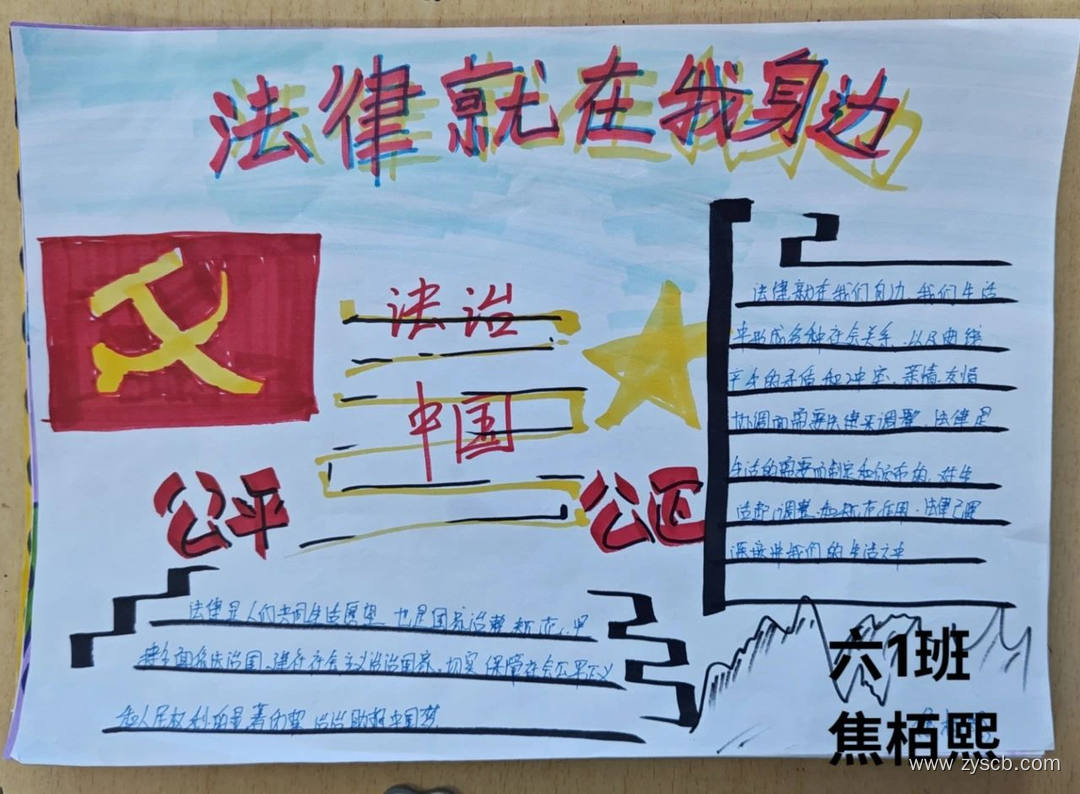 法律就在我身边
法治
中国
公平
公正
法律就在我们身边、我们生活
中形成各种社会关系、以及由经
产生的矛盾和冲突、亲情、友情
协调而需要法律来调整、法律是
生活的需要而制定和颁布的、对生
活起调整和规范作用、法律已深
深接进我们的生活之中
法律是人们共同生活愿望、也是国家治整规范、
全面依法治国、建设社会主义法治国家、切实保障社会公平正义
和人民权利的
法治助推中国梦
六1班
焦栢熙
www.zyscb.com